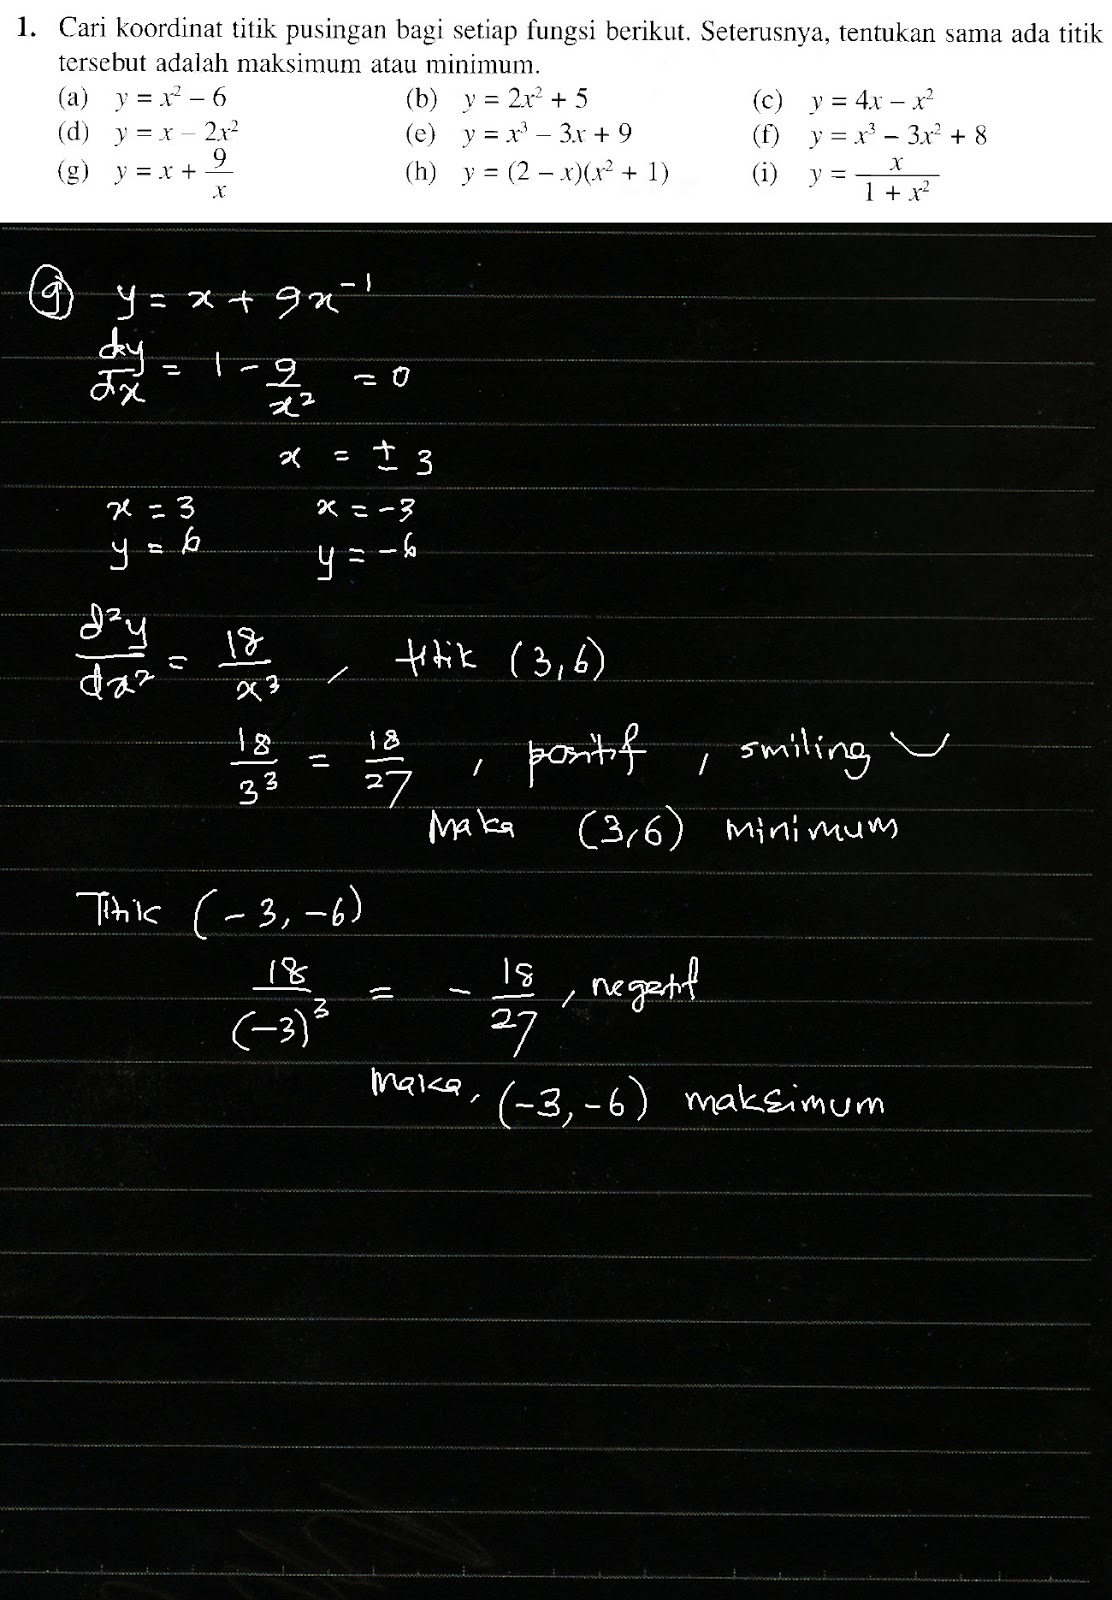 1. Cari koordinat titik pusingan bagi setiap fungsi berikut. Seterusnya, tentukan sama ada titik
tersebut adalah maksimum atau minimum.
(a) y = x² – 6 (b) y = 2x² + 5 (c) y = 4x – x²
(d) y = x – 2x² (e) y = x³ – 3x + 9 (f) y = x³ – 3x² + 8
(g) y = x + 9/x (h) y = (2 – x)(x² + 1) (i) y = x/(1 + x²)
(g) y = x + 9x⁻¹
dy/dx = 1 - 9/x² = 0
x = ± 3
x = 3 x = -3
y = 6 y = -6
d²y/dx² = 18/x³ , titik (3,6)
18/3³ = 18/27 , positif , smiling
Maka (3,6) minimum
Titik (-3, -6)
18/(-3)³ = - 18/27 , negatif
Maka, (-3, -6) maksimum